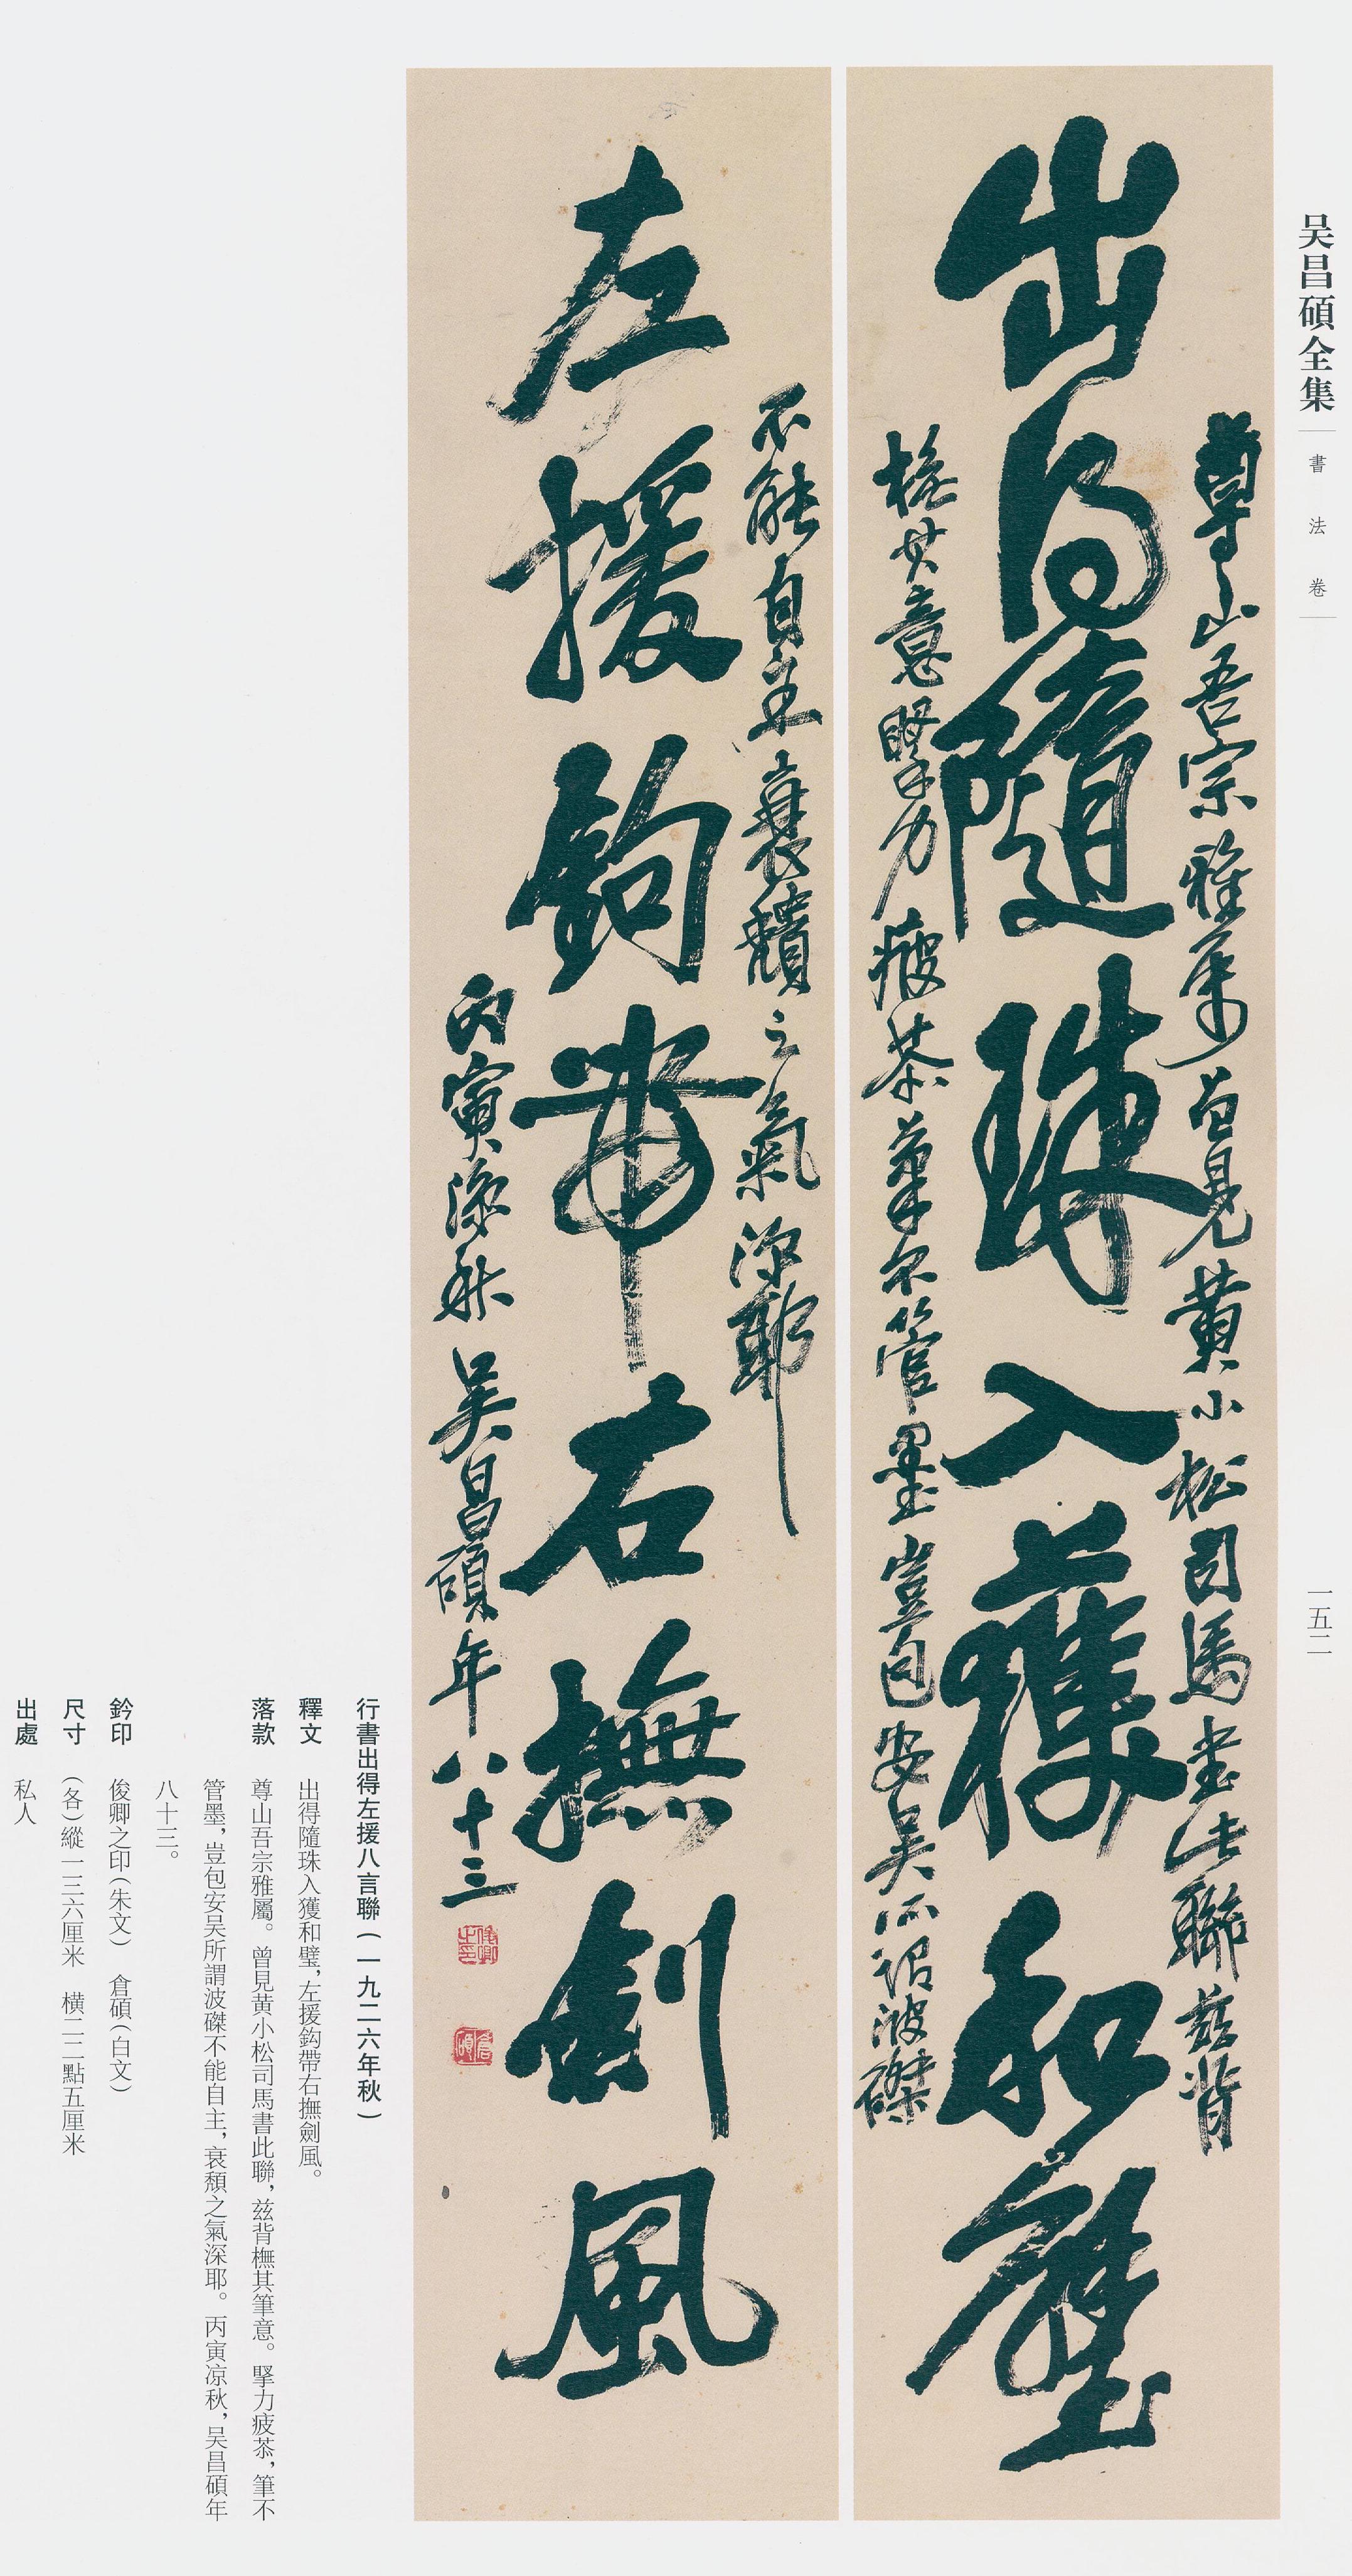 吴昌碩全集
書法卷
一五二
尊山吾宗雅屬曾見黄小松司馬書此聯兹背
出得隨珠入獲和璧
橅其意掔力疲苶筆不管墨豈包安吴所謂波磔
不能自主衰頽之氣深耶
左援鈎帶右撫劍風
丙寅涼秋吴昌碩年八十三
俊卿之印
倉碩
行書出得左援八言聯(一九二六年秋)
釋文 出得隨珠入獲和璧,左援鈎帶右撫劍風。
落款 尊山吾宗雅屬。曾見黄小松司馬書此聯,兹背橅其筆意。掔力疲苶,筆不
管墨,豈包安吴所謂波磔不能自主,衰頽之氣深耶。丙寅凉秋,吴昌碩年
八十三。
鈐印 俊卿之印(朱文) 倉碩(白文)
尺寸 (各)縱一三六厘米 橫二二點五厘米
出處 私人